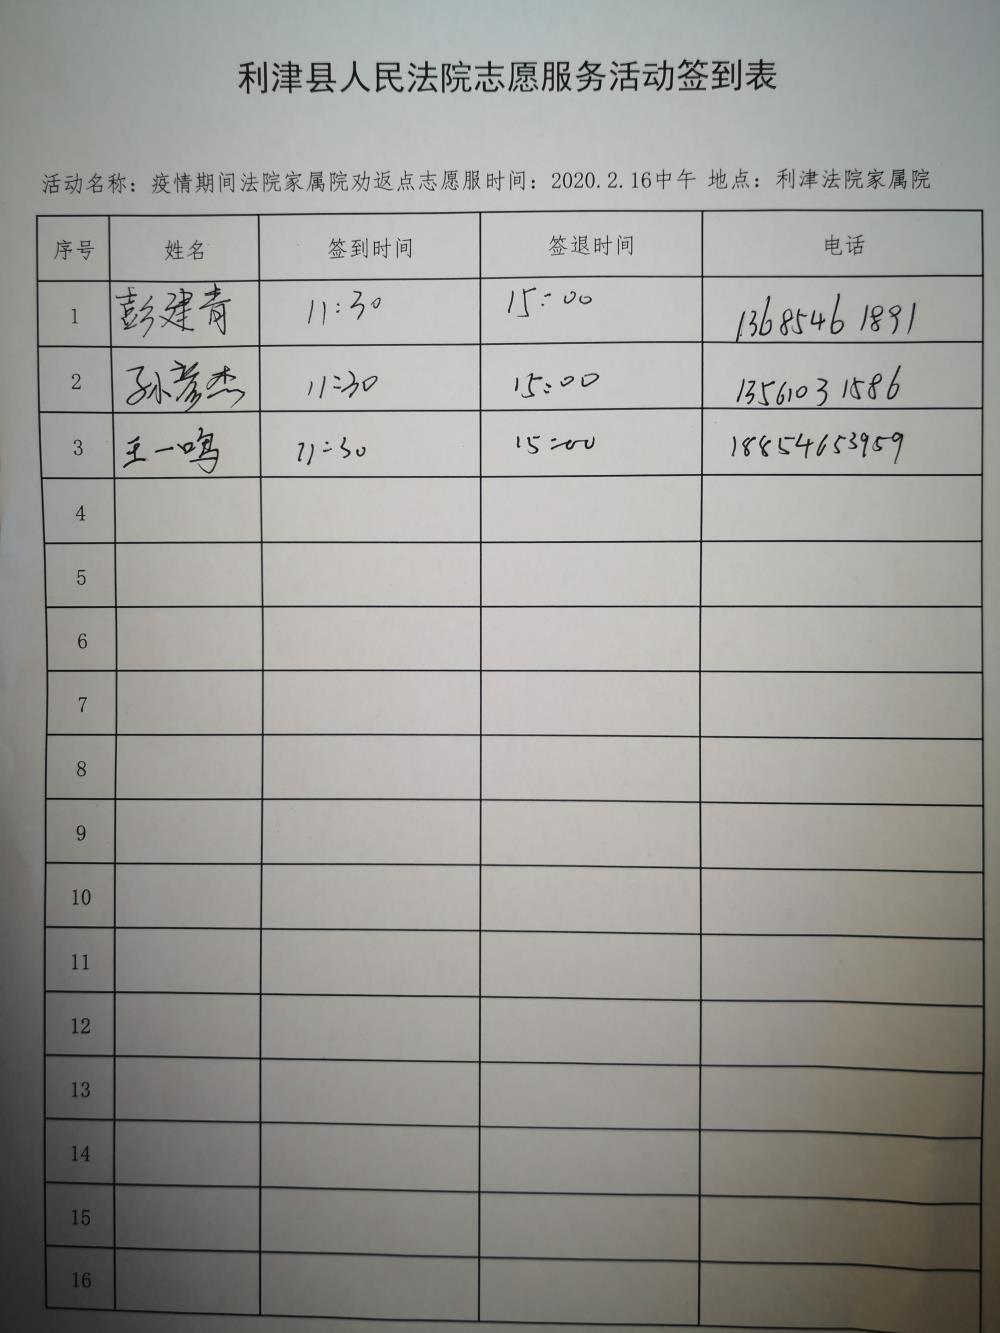 利津县人民法院志愿服务活动签到表
活动名称：疫情期间法院家属院劝返点志愿服时间：2020.2.16中午 地点：利津法院家属院
序号 姓名 签到时间 签退时间 电话
1 彭建青 11:30 15:00 13685461891
2 孙彦杰 11:30 15:00 13561031586
3 王一鸣 11:30 15:00 18854653959
4
5
6
7
8
9
10
11
12
13
14
15
16